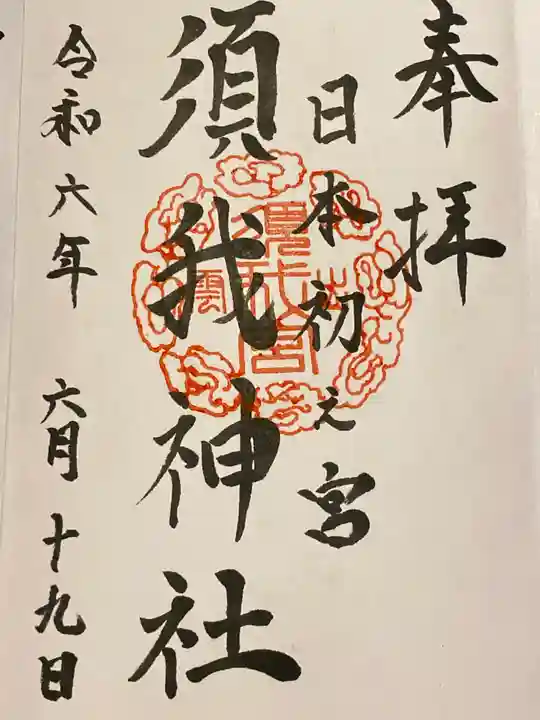 奉拝
日本初之宮
須我神社
令和六年 六月十九日
須我宮
出雲